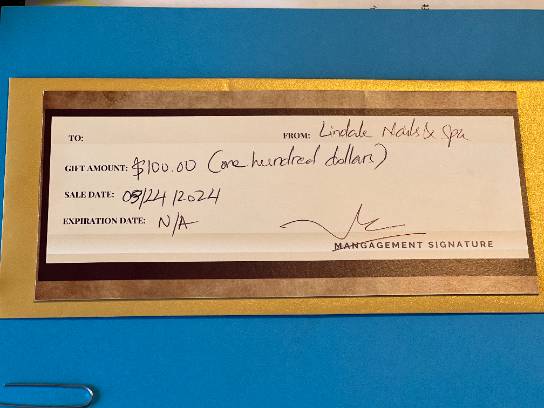 TO:
FROM: Lindale Nails & Spa
GIFT AMOUNT: $100.00 (one hundred dollars)
SALE DATE: 05/24/2024
EXPIRATION DATE: N/A
MANGAGEMENT SIGNATURE